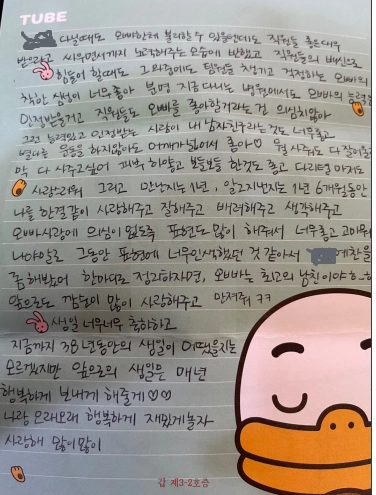 TUBE
다닐때도 오빠한테 불리할 수 있을텐데도 직원들 좋은대우
받으라고 싸우면서까지 노력해주는 모습에 반했고 직원들의 배신으로
힘들어 할때도 그 와중에도 팀원들 챙기고 걱정하는 오빠의
착한 심성이 너무좋아 분명 지금 다니는 병원에서도 오빠의 능력을
인정받을거고 직원들도 오빠를 좋아할거라는 것 의심치않아
그런 능력있고 인정받는 사람이 내 남자친구라는것도 너무좋고
별다른 운동을 하지않아도 어깨가넓어서 좋아♡ 뭘 사줘도 다 잘어울
막 다 사주고싶어 피부 하얗고 보들보들 한것도 좋고 다리털 마저도
사랑스러워 그리고 만난지는 1년, 알고지낸지는 1년 6개월동안
나를 한결같이 사랑해주고 잘해주고 배려해주고 생각해주고
오빠사랑에 의심이 없도록 표현도 많이 해줘서 너무좋고 고마워
나야말로 그동안 표현에 너무인색했던 것 같아서 예찬을
꼽 해봤어 한마디로 정리하자면, 오빠는 최고의 남친이야 ㅎ_ㅎ
앞으로도 꺼덕이 많이 사랑해주고 만져줘 ㅋㅋ
생일 너무너무 축하하고
지금까지 38년동안의 생일이 어땠을지는
모르겠지만 앞으로의 생일은 매년
행복하게 보내게 해줄게♡♡
나랑 오래오래 행복하게 재밌게놀자
사랑해 많이많이
갑 제3-2호증